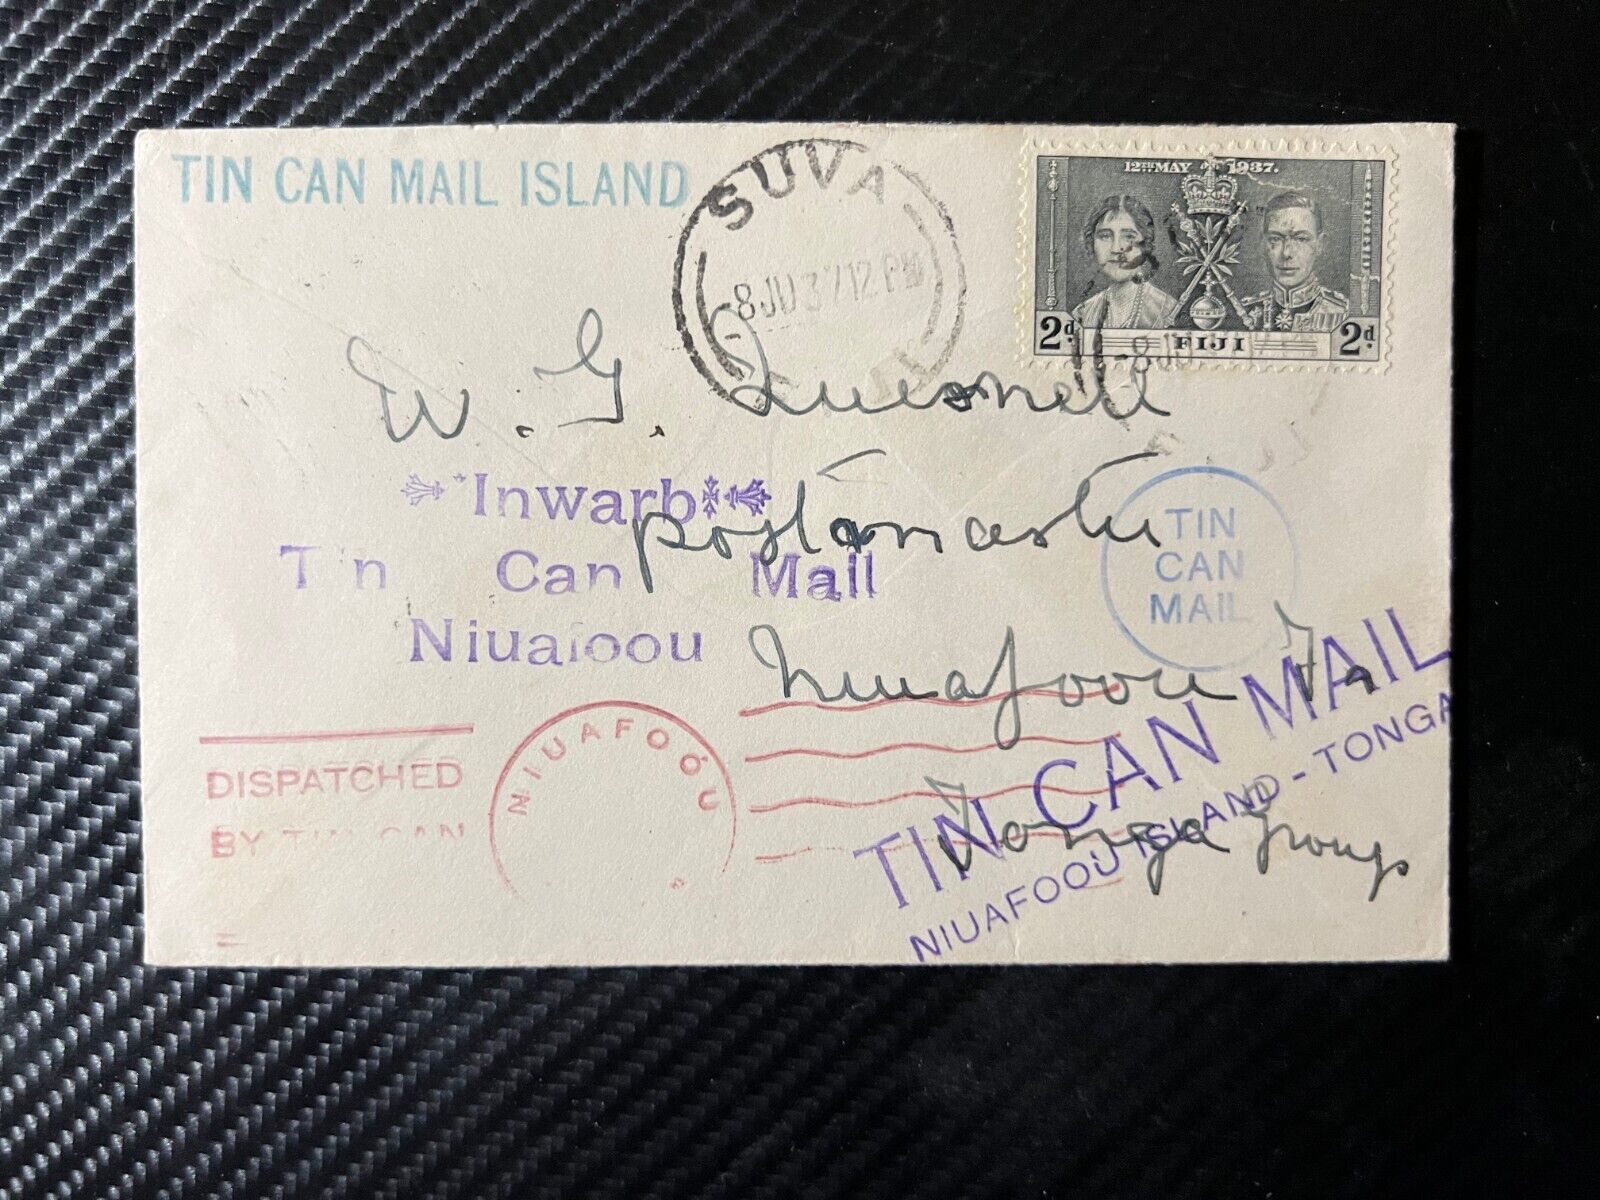 TIN CAN MAIL ISLAND
SUVA
-8 JU 37 12 PM
12TH MAY 1937.
2d. 2d.
FIJI
-8 JU
W. G. Quesnell
Inwarb
postmaster
Tin Can Mail
TIN
CAN
MAIL
Niuafoou
Niuafoou Is
DISPATCHED
BY TIN CAN
NIUAFOÓU
TIN CAN MAIL
NIUAFOOU ISLAND - TONGA
Tonga Group